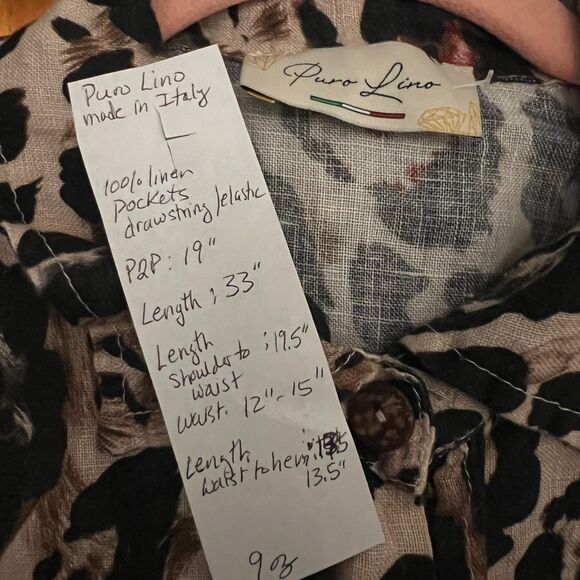 Puro Lino
Puro Lino
made in Italy
L
100% linen
pockets
drawstring/elastic
P2P: 19"
Length: 33"
Length
shoulder to : 19.5"
waist
waist: 12"-15"
Length
waist to hem:
13.5"
9 oz